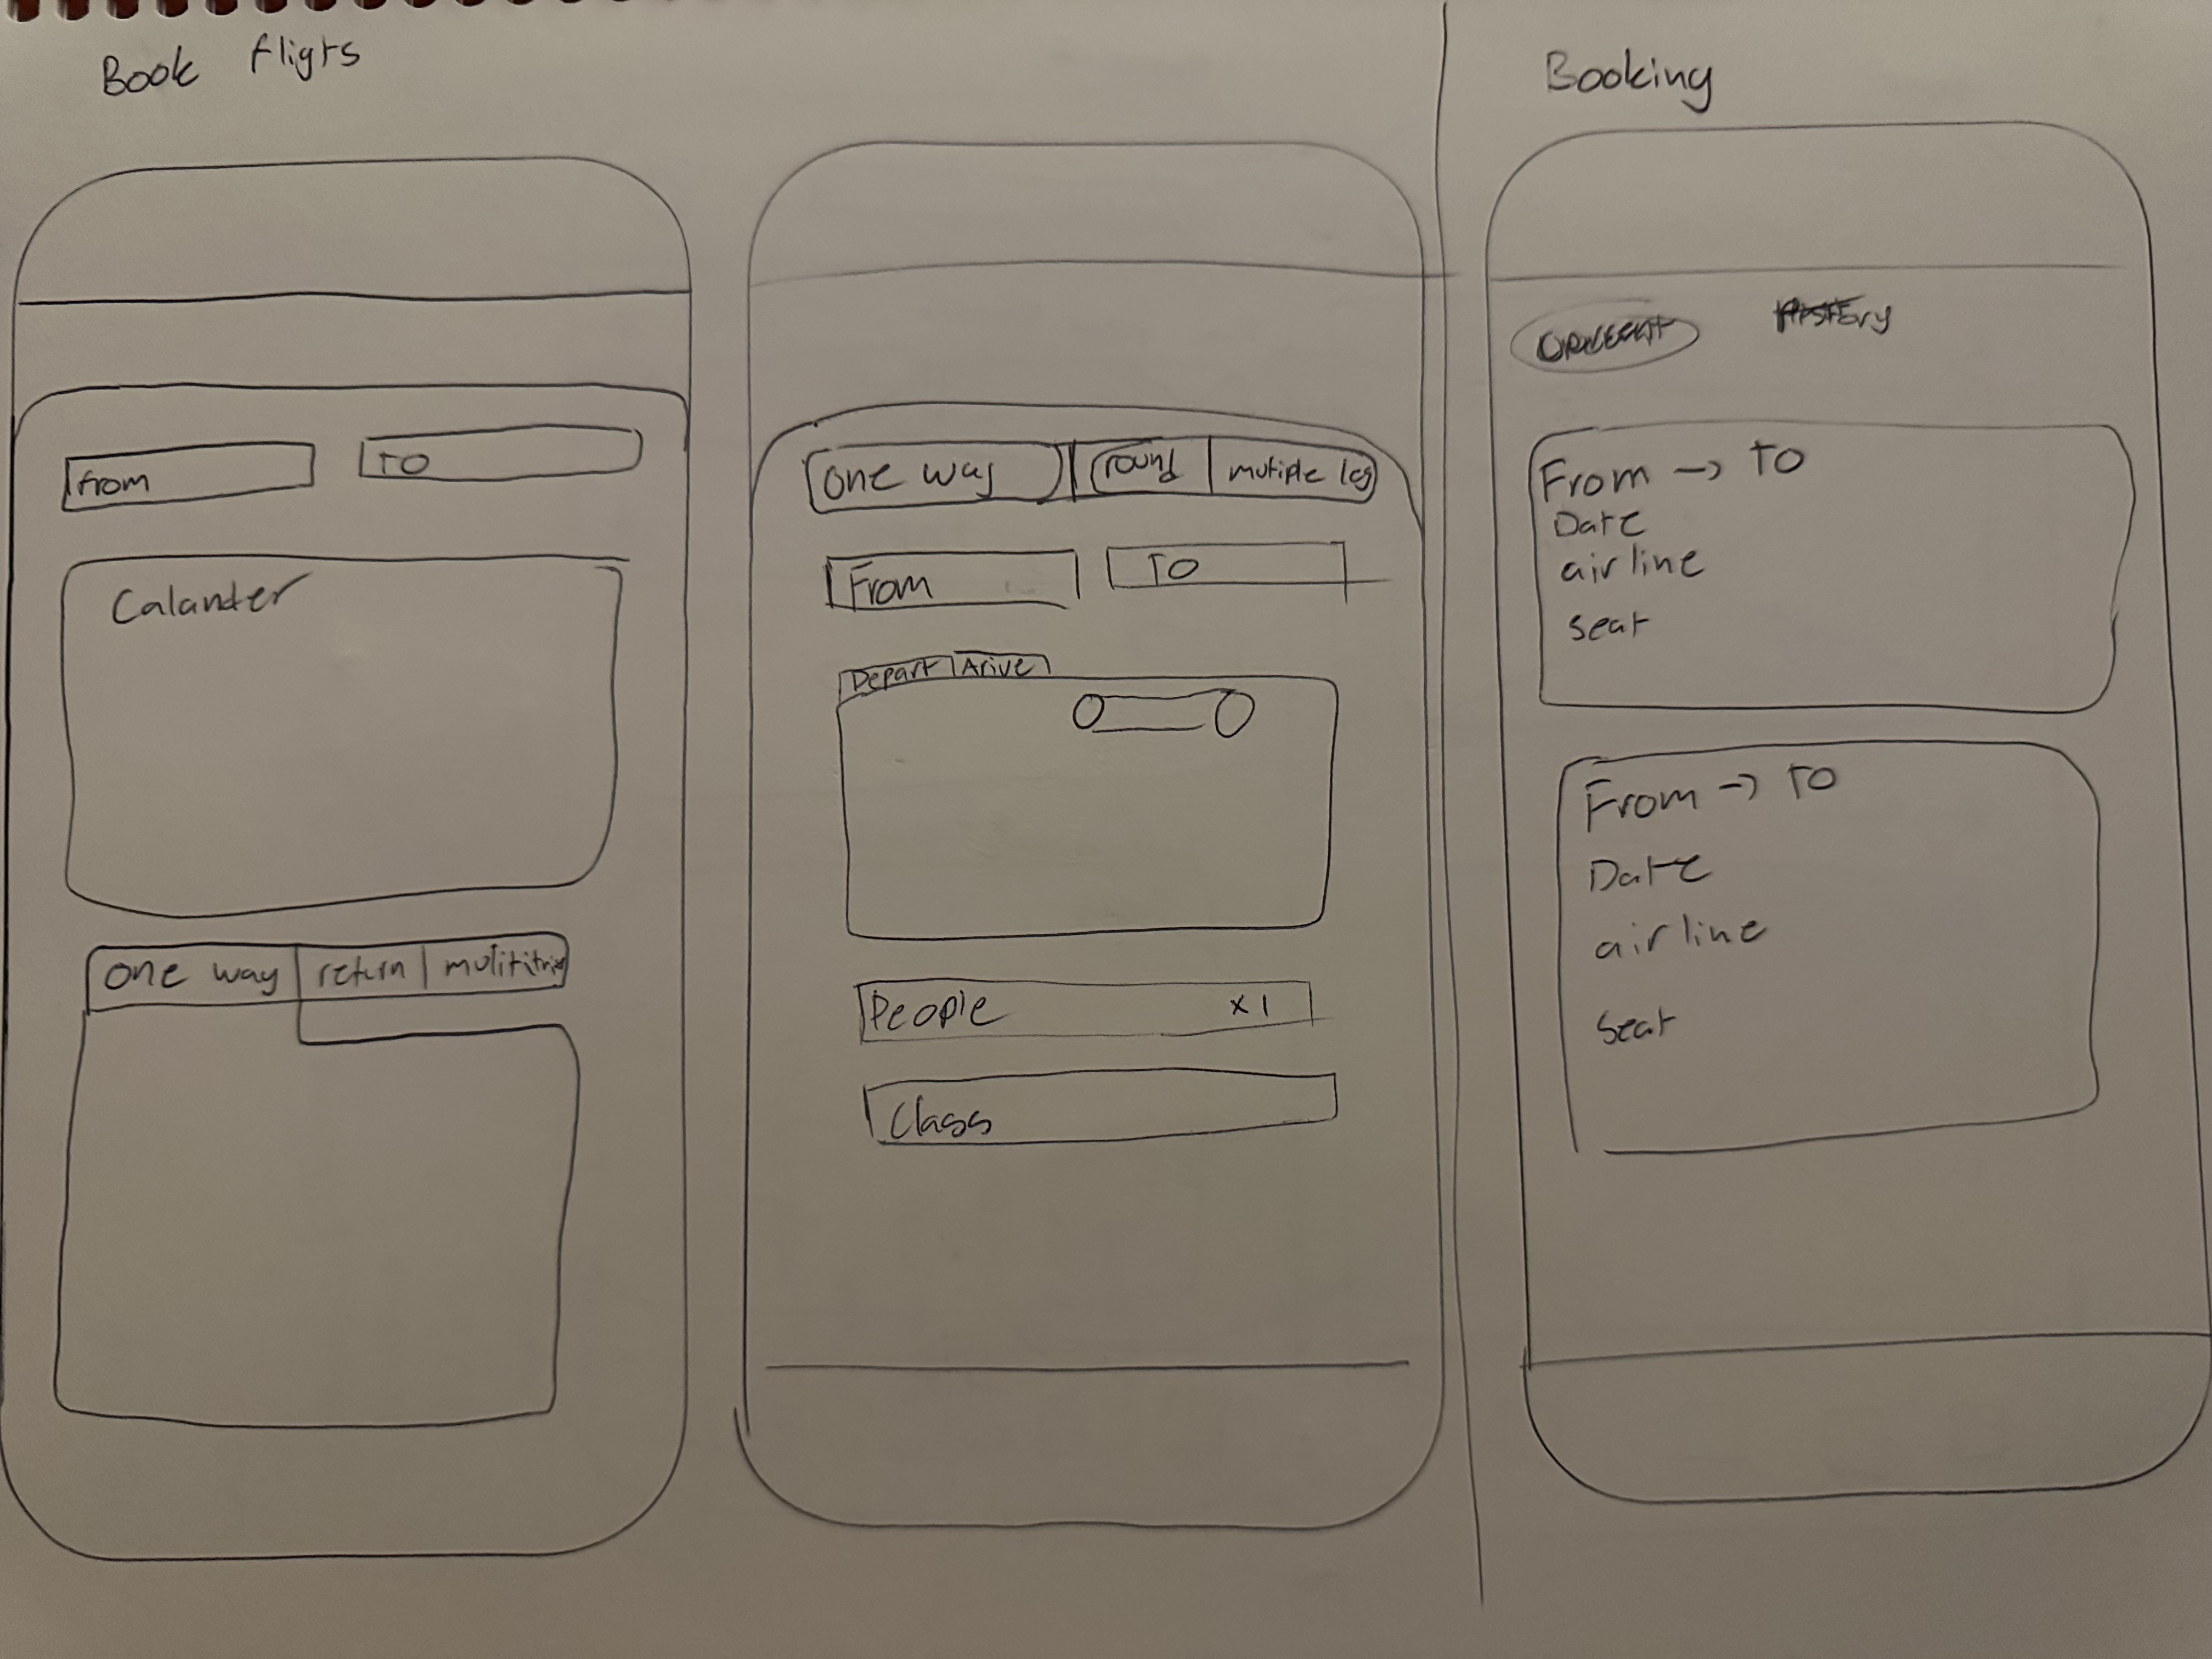 Book fligts
from
To
Calander
one way return multitrip
one way round mutiple leg
From
To
Depart Arive
People x1
Class
Booking
History
From → To
Date
airline
seat
From → To
Date
airline
seat